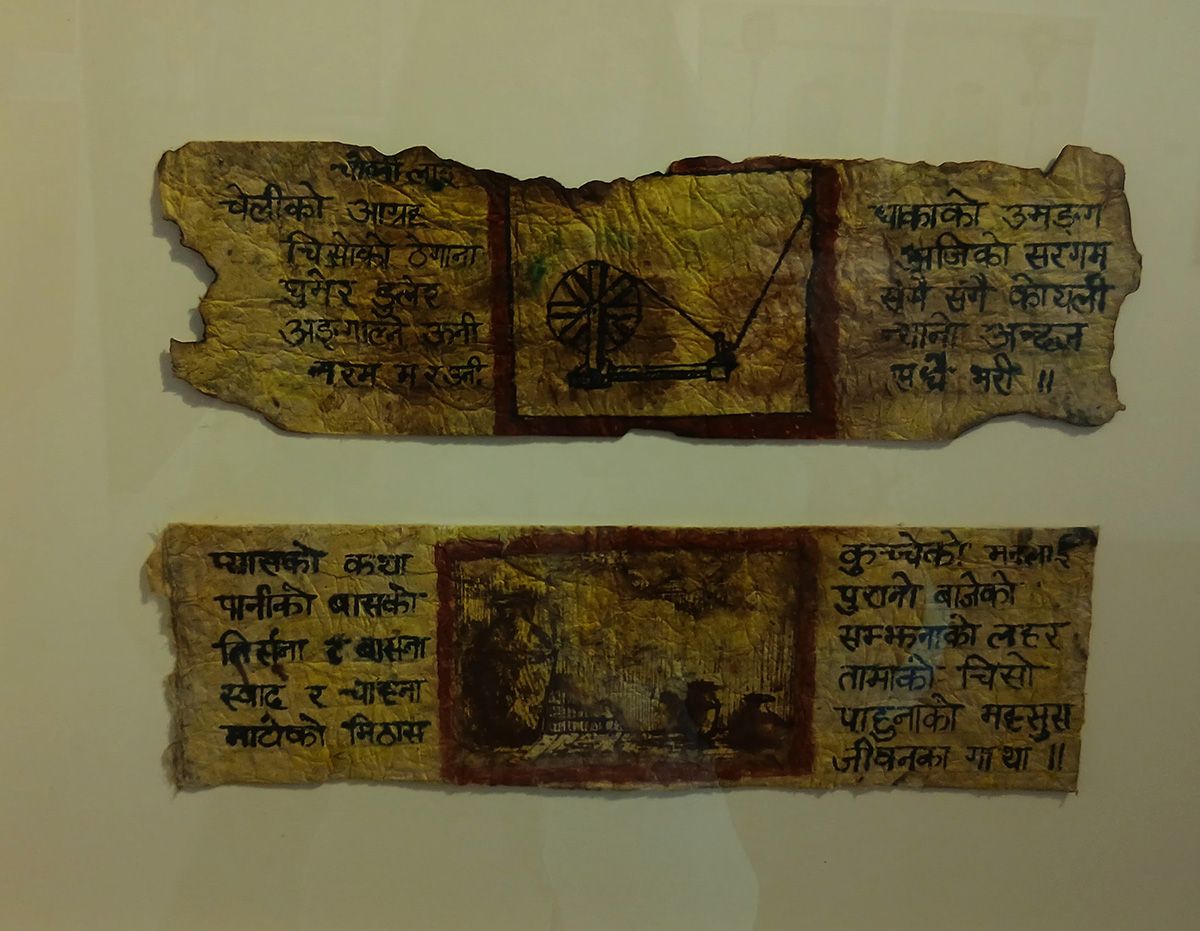 लाइ
चेलीको आग्रह
चिसोको ठेगाना
घुमेर डुलेर
अङ्गाल्ने ऊनी
नरम
धाकाको उमङ्ग
सरगम
संगै संगै कोयली
न्यानो अन्दाज
सधै भरी ॥
प्यासको कथा
पानीको बासको
तिर्सना र बासना
स्वाद र चाहना
माटोको मिठास
कुच्चेको मनलाई
पुरानो बाजेको
सम्झनाको लहर
तामाको चिसो
पाहुनाको महसुस
जीवनका गाथा ॥